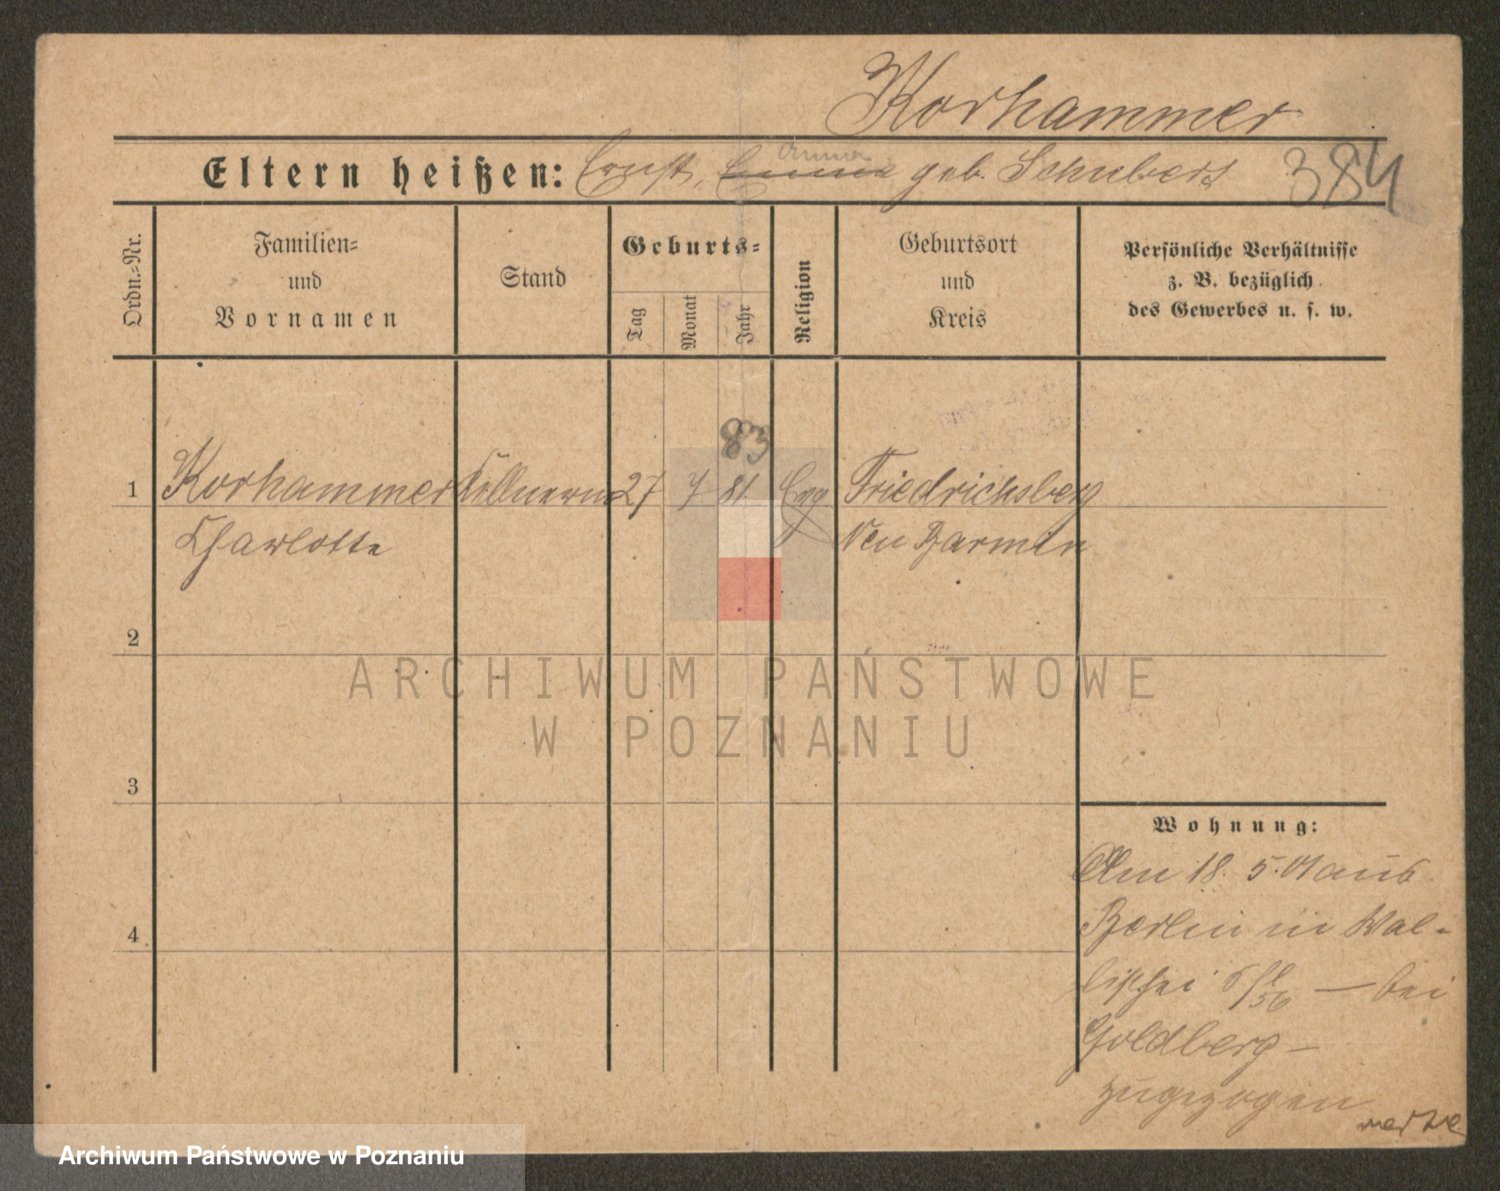 Korhammer
Eltern heißen: Ernst, Emma Anna geb. Schubert
384
Ordn.=Nr.
Familien=
und
Vornamen
Stand
Geburts=
Tag
Monat
Jahr
Religion
Geburtsort
und
Kreis
Persönliche Verhältnisse
z. B. bezüglich
des Gewerbes u. s. w.
83
1 Korhammer Kellnerin 27 7 81. Evg Friedrichsberg
Charlotte
2
3
4
Wohnung:
Am 18. 5. 01 aus
Berlin in Wal-
lischei 5/6 — bei
Goldberg —
zugezogen
ARCHIWUM PAŃSTWOWE
W POZNANIU
Archiwum Państwowe w Poznaniu